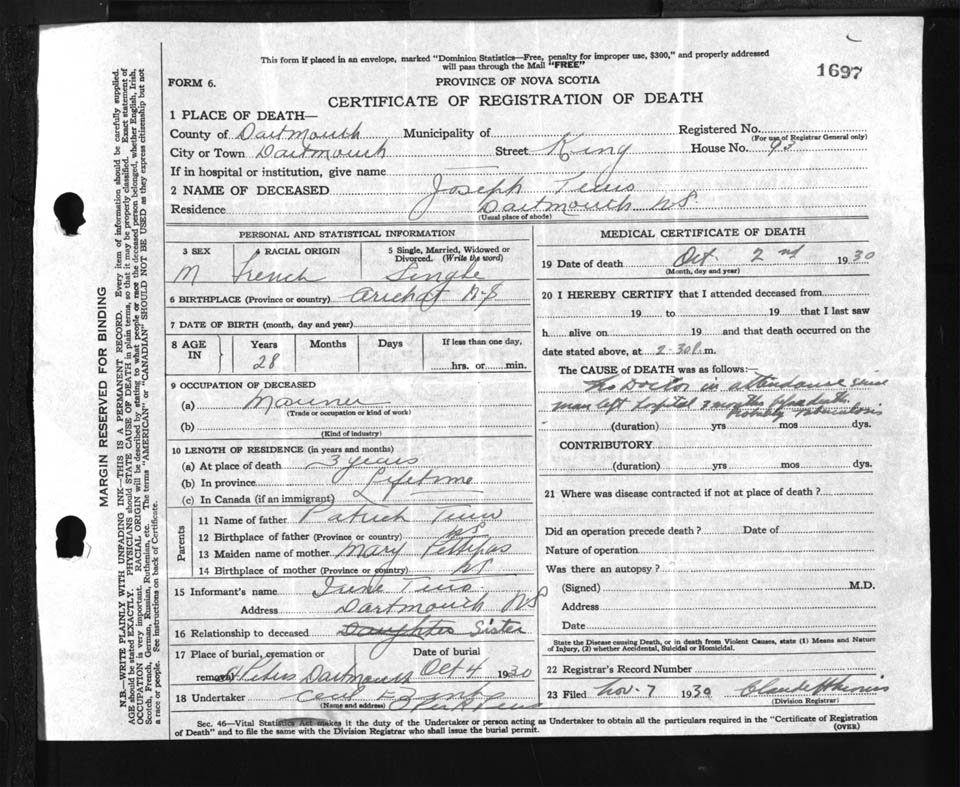 This form if placed in an envelope, marked "Dominion Statistics—Free, penalty for improper use, $300," and properly addressed
will pass through the Mail "FREE"
1697
FORM 6.
PROVINCE OF NOVA SCOTIA
CERTIFICATE OF REGISTRATION OF DEATH
1 PLACE OF DEATH—
County of Dartmouth Municipality of Registered No.
(For use of Registrar General only)
City or Town Dartmouth Street King House No. 93
If in hospital or institution, give name
2 NAME OF DECEASED Joseph
Residence Dartmouth NS.
(Usual place of abode)
PERSONAL AND STATISTICAL INFORMATION
3 SEX 4 RACIAL ORIGIN 5 Single, Married, Widowed or
Divorced. (Write the word)
M French Single
6 BIRTHPLACE (Province or country) Arichat N.S
7 DATE OF BIRTH (month, day and year)
8 AGE IN Years Months Days If less than one day,
28 hrs. or min.
9 OCCUPATION OF DECEASED
(a) Mariner
(Trade or occupation or kind of work)
(b)
(Kind of industry)
10 LENGTH OF RESIDENCE (in years and months)
(a) At place of death 3 years
(b) In province Lifetime
(c) In Canada (if an immigrant)
Parents
11 Name of father Patrick
12 Birthplace of father (Province or country) NS
13 Maiden name of mother Mary Pettipas
14 Birthplace of mother (Province or country) NS
15 Informant's name
Address Dartmouth NS
16 Relationship to deceased Daughter Sister
17 Place of burial, cremation or Date of burial
removal St Peters Dartmouth Oct 4 1930
18 Undertaker
(Name and address)
MEDICAL CERTIFICATE OF DEATH
19 Date of death Oct 2nd 1930
(Month, day and year)
20 I HEREBY CERTIFY that I attended deceased from
19 to 19 that I last saw
h alive on 19 and that death occurred on
date stated above, at 2-30 p.m.
The CAUSE of DEATH was as follows:—
No Doctor in attendance since
man left hospital 3 months before death
Probably tuberculosis
(duration) yrs mos dys.
CONTRIBUTORY
(duration) yrs mos dys.
21 Where was disease contracted if not at place of death?
Did an operation precede death? Date of
Nature of operation
Was there an autopsy?
(Signed) M.D.
Address
Date
State the Disease causing Death, or in death from Violent Causes, state (1) Means and Nature
of Injury, (2) whether Accidental, Suicidal or Homicidal.
22 Registrar's Record Number
23 Filed Nov-7 1930
(Division Registrar)
Sec. 46—Vital Statistics Act makes it the duty of the Undertaker or person acting as Undertaker to obtain all the particulars required in the "Certificate of Registration
of Death" and to file the same with the Division Registrar who shall issue the burial permit.
(OVER)
MARGIN RESERVED FOR BINDING
N.B.—WRITE PLAINLY WITH UNFADING INK—THIS IS A PERMANENT RECORD. Every item of information should be carefully supplied.
AGE should be stated EXACTLY. PHYSICIANS should STATE CAUSE OF DEATH in plain terms, so that it may be properly classified. Exact statement of
OCCUPATION is very important. RACIAL ORIGIN will be described by stating to what people or race the deceased person belonged, whether English, Irish,
Scotch, French, German, Russian, Ruthenian, etc. The terms "AMERICAN" or "CANADIAN" SHOULD NOT BE USED as they express citizenship but not
a race or people. See instructions on back of Certificate.